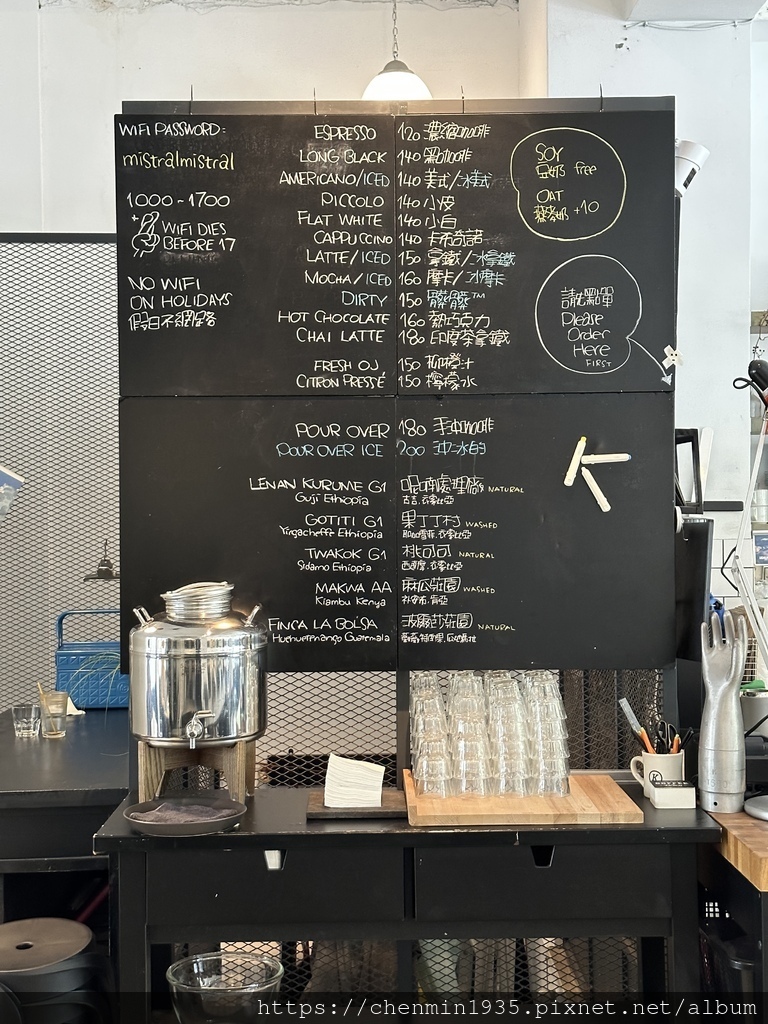 WIFI PASSWORD:
mistralmistral
1000~1700
WIFI DIES
BEFORE 17
NO WIFI
ON HOLIDAYS
假日不提供
ESPRESSO 120 濃縮咖啡
LONG BLACK 140 黑咖啡
AMERICANO/ICED 140 美式/冰美式
PICCOLO 140 小皮
FLAT WHITE 140 小白
CAPPUCCINO 140 卡布奇諾
LATTE/ICED 150 拿鐵/冰拿鐵
MOCHA/ICED 160 摩卡/冰摩卡
DIRTY 150 髒髒™
HOT CHOCOLATE 160 熱巧克力
CHAI LATTE 180 印度茶拿鐵
FRESH OJ 150 柳橙汁
CITRON PRESSÉ 150 檸檬水
SOY
豆奶 free
OAT
燕麥奶 +10
請點單
Please
Order
Here
FIRST
POUR OVER 180 手沖咖啡
POUR OVER ICE 200 沖冰的
LENAN KURUME G1 NATURAL
Guji Ethiopia 古吉.衣索比亞
GOTITI G1 果丁丁村 WASHED
Yirgacheffe Ethiopia 耶加雪菲.衣索比亞
TWAKOK G1 桃可可 NATURAL
Sidamo Ethiopia 西達摩.衣索比亞
MAKWA AA 麻瓜莊園 WASHED
Kiambu Kenya
FINCA LA BOLSA 波爾莎莊園 NATURAL
Huehuetenango Guatemala
https://chenmin1935.pixnet.net/album